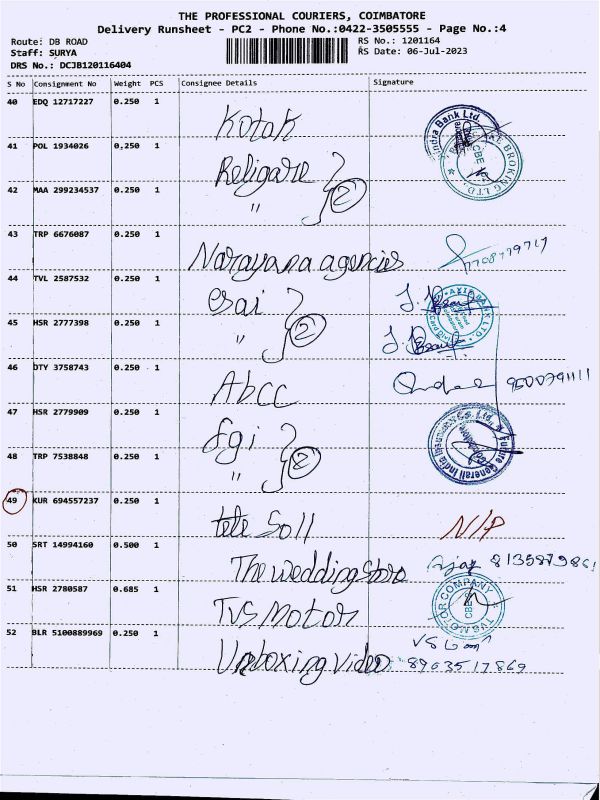 THE PROFESSIONAL COURIERS, COIMBATORE
Delivery Runsheet - PC2 - Phone No.:0422-3505555 - Page No.:4
Route: DB ROAD
RS No.: 1201164
Staff: SURYA
RS Date: 06-Jul-2023
DRS No.: DCJB120116404
S No Consignment No Weight PCS Consignee Details Signature
40 EDQ 12717227 0.250 1 Kotak
41 POL 1934026 0.250 1 Religare
42 MAA 299234537 0.250 1 " 2
43 TRP 6676087 0.250 1 Narayana agencies 7708779717
44 TVL 2587532 0.250 1 esai
45 HSR 2777398 0.250 1 " 2
46 DTY 3758743 0.250 1 Abcc 9500791111
47 HSR 2779909 0.250 1 fgi
48 TRP 7538848 0.250 1 " 2
49 KUR 694557237 0.250 1 tele Soll N/P
50 SRT 14994160 0.500 1 The wedding store Ajay
51 HSR 2780587 0.685 1 TVS Motor TVS MOTOR COMPANY CBE
52 BLR 5100889969 0.250 1 Unboxing video 8903517869